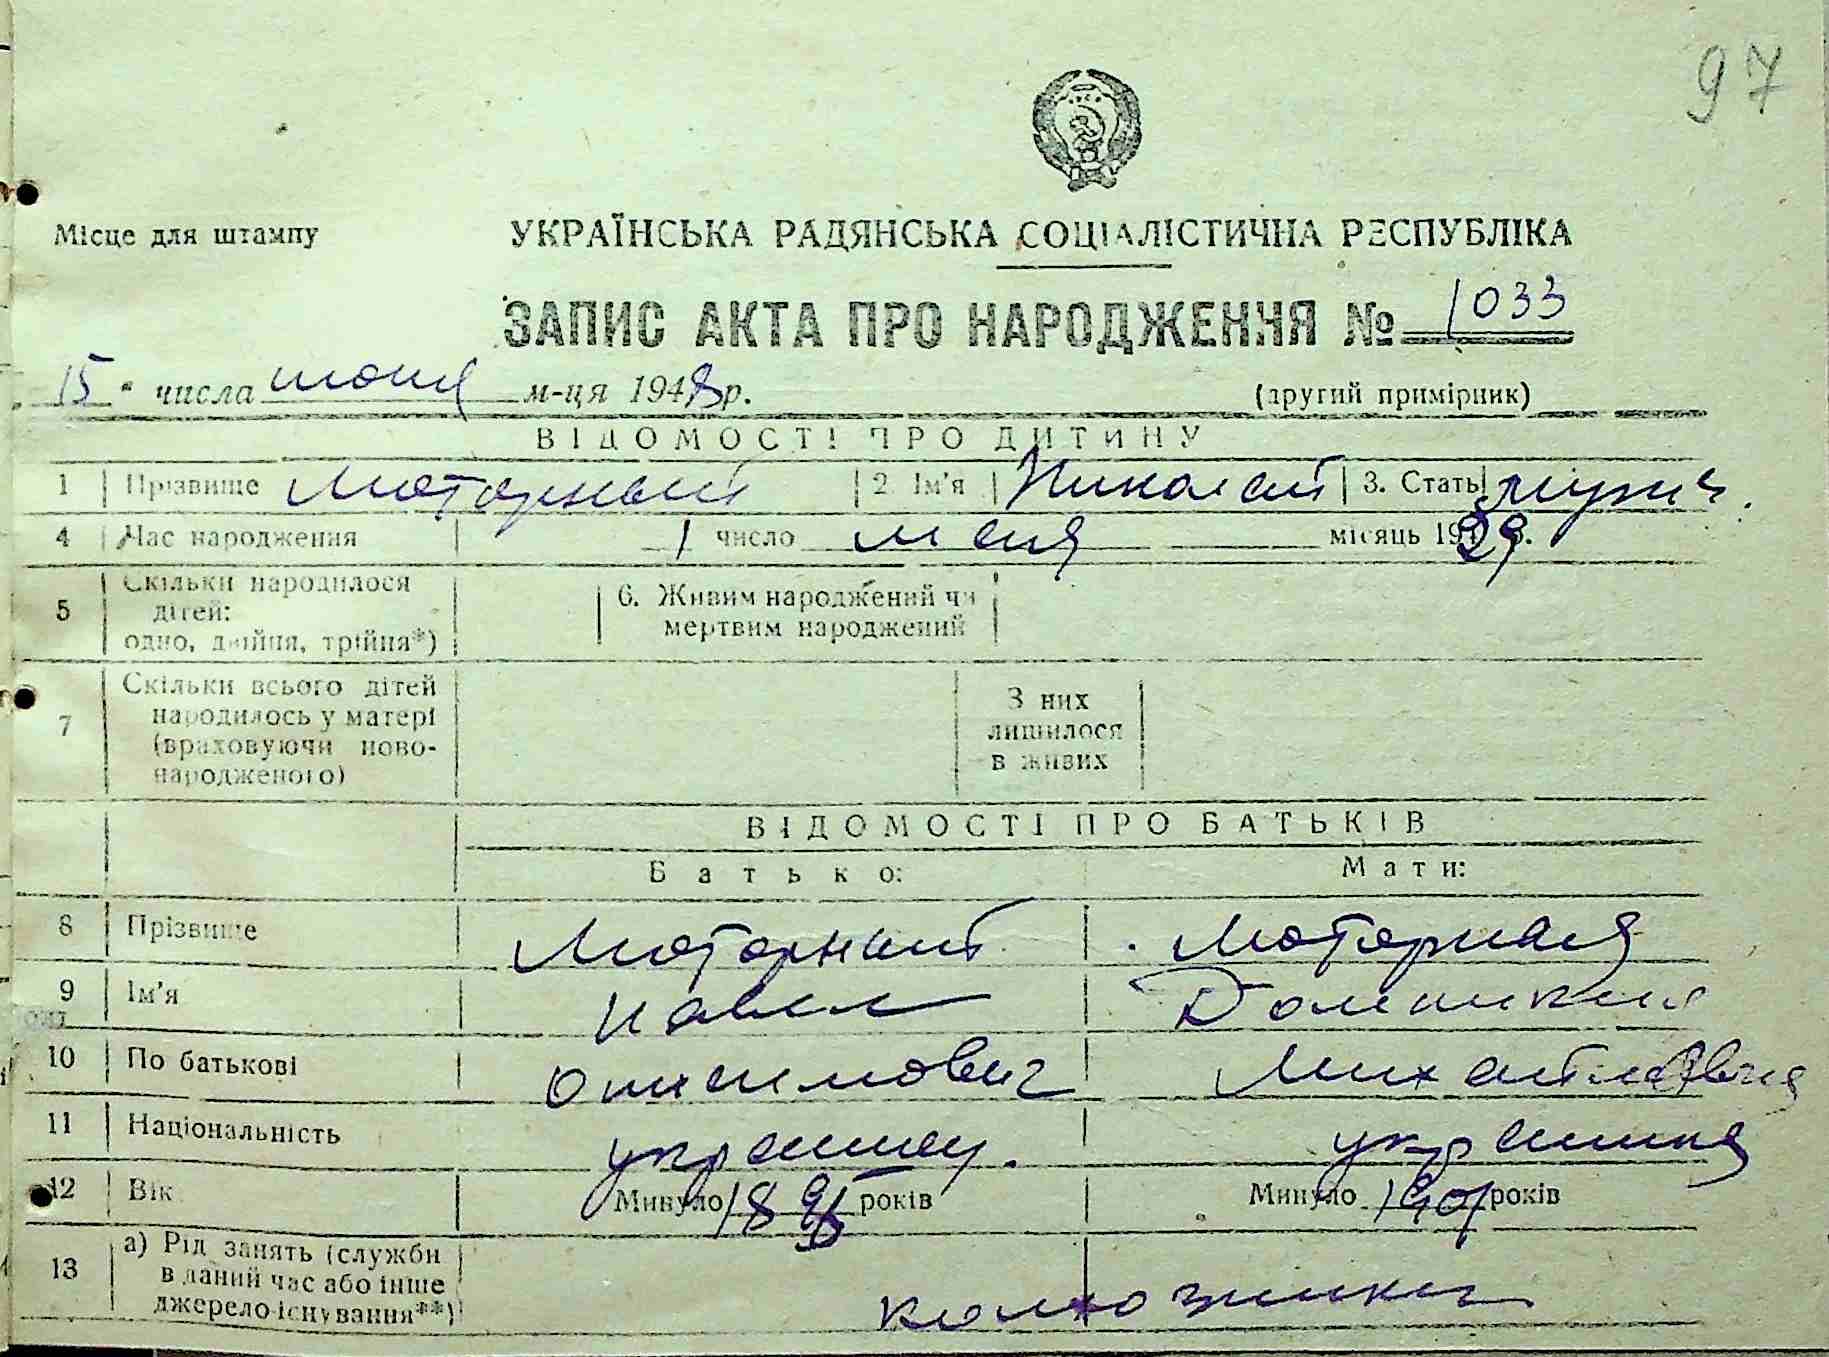 97
Місце для штампу
УКРАЇНСЬКА РАДЯНСЬКА СОЦІАЛІСТИЧНА РЕСПУБЛІКА
ЗАПИС АКТА ПРО НАРОДЖЕННЯ № 1033
15 " числа июня м-ця 1948 р.
(другий примірник)
ВІДОМОСТІ ПРО ДИТИНУ
1 Прізвище Моторный 2. Ім'я Николай 3. Стать мужч.
4 Час народження 1 число мая місяць 1929
5 Скільки народилося дітей:
одно, двійня, трійня*)
6. Живим народжений чи
мертвим народжений
7 Скільки всього дітей
народилось у матері
(враховуючи ново-
народженого)
З них
лишилося
в живих
ВІДОМОСТІ ПРО БАТЬКІВ
Батько: Мати:
8 Прізвище Моторный Моторная
9 Ім'я Павел Доминикия
10 По батькові Онисимович Михайловна
11 Національність украинец. украинка
12 Вік Минуло років Минуло 1901 років
13 а) Рід занять (служби
в даний час або інше
джерело існування**)
колхозники